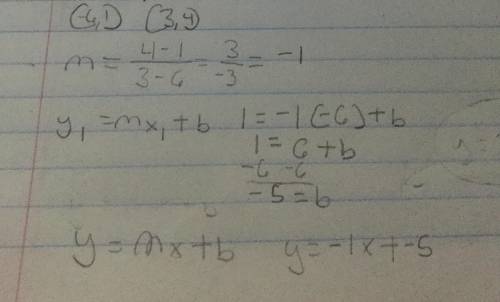 (-6,1) (3,4)
m = 4-1/3-6 = 3/-3 = -1
y₁ = mx₁ + b 1 = -1(-6) + b
1 = 6 + b
-6 -6
-5 = b
y = mx + b y = -1x + -5